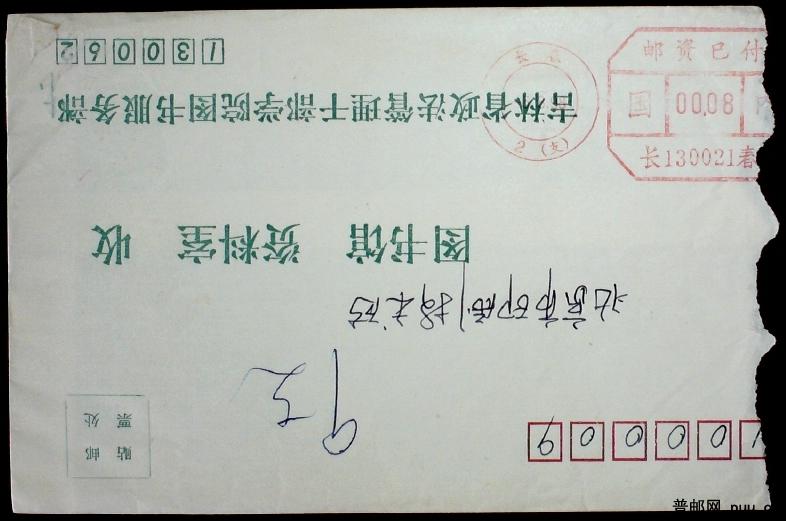 邮资已付
国 00.08
长130021春
长春
2(支)
10000
贴邮
票处
北京市印刷技术所
图书馆 资料室 收
吉林省政法管理干部学院图书服务部
130062
普邮网